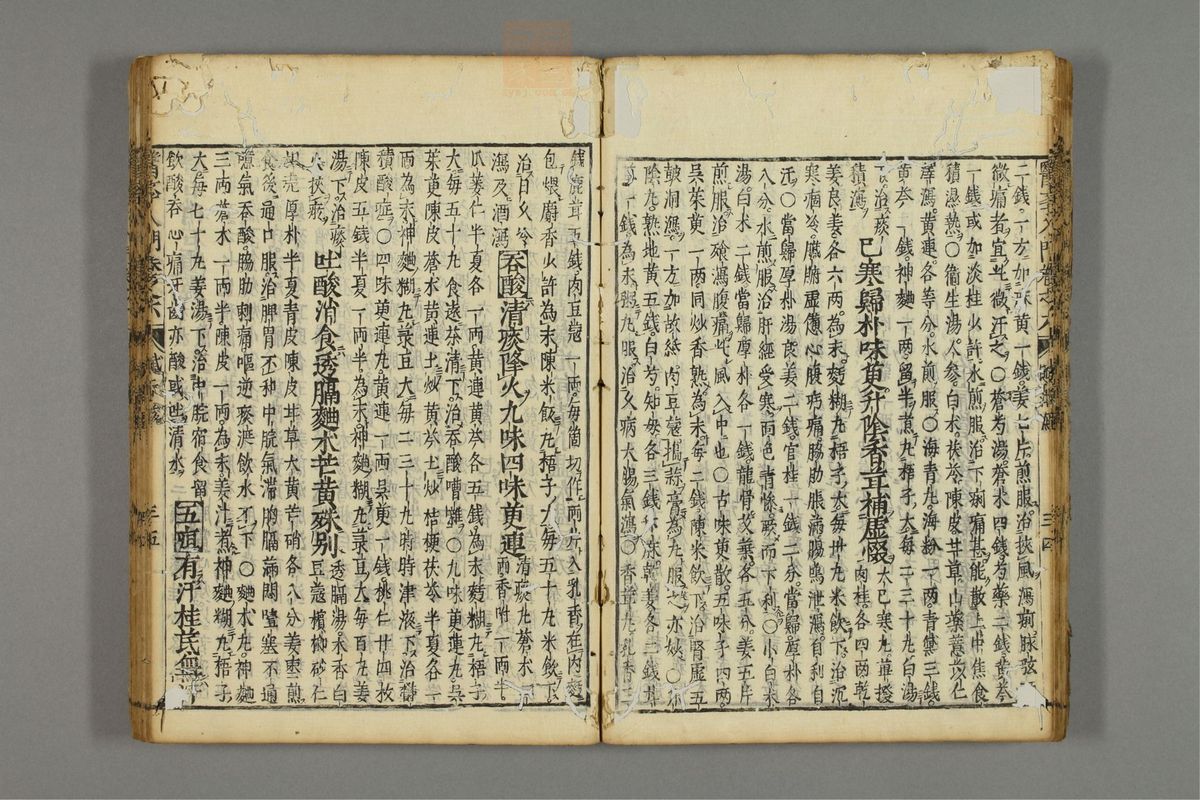 二錢一方加麻黄一錢姜七片煎服治挾風瀉痢脉弦
微痛者宜此微汗之〇蒼芍湯蒼术四錢芍藥二錢黄芩
一錢或加淡桂少許水煎服治下痢痛甚能散上中焦食
積濕熱〇衛生湯人參白术茯苓陳皮甘草山藥薏苡仁
澤瀉黄連各等分水煎服〇海青丸海粉一兩青黛三錢
黄芩二錢神麯一兩留半煮丸梧子大每二三十丸白湯
下治痰
積瀉
已寒歸朴味茰升陰香茸補虛慢
大已寒丸蓽撥
肉桂各四兩乾
姜良姜各六兩為末麪糊丸梧子大每卄丸米飲下治沉
寒痼冷臟腑虛憊心腹㽲痛脇肋脹滿腸鳴泄瀉自利自
汗〇當歸厚朴湯良姜二錢官桂一錢二分當歸厚朴各
八分水煎服治肝經受寒面色青慘厥而下利〇小白术
湯白术二錢當歸厚朴各一錢龍骨艾葉各五分姜五片
煎服治飧瀉腹痛此風入中也〇古味茰散五味子四兩
吳茱茰一兩同炒香熟為末每二錢陳米飲下治腎虛五
鼓洞瀉
錢鹿茸五錢肉豆蔻一兩每箇切作兩片入乳香在内麪
包煨麝香少許為末陳米飯丸梧子大每五十丸米飲下
治日久冷
瀉及酒瀉
吞酸清痰降火九味四味茰連
清痰丸蒼术
二兩香附一兩半
瓜蔞仁半夏各一兩黄連黄芩各五錢為末麪糊丸梧子
大每五十丸食遠茶清下治吞酸嘈雜〇九味茰連丸吳
茱茰陳皮蒼术黄連土炒黄芩土炒桔梗茯苓半夏各一
兩為末神麯糊丸菉豆大每二三十丸時時津液下治鬱
積酸症〇四味茰連丸黄連一兩吳茰一錢桃仁廿四枚
陳皮五錢半夏一兩半為末神麯糊丸菉豆大每百丸姜
湯下治痰
火挾瘀
吐酸消食透膈麯术芒黄殊别
透膈湯木香白
豆蔻檳榔砂仁
枳殼厚朴半夏青皮陳皮甘草大黄芒硝各八分姜棗煎
食後通口服治脾胃不和中脘氣滯胸膈滿悶噎塞不通
噫氣吞酸脇肋刺痛嘔逆痰涎飲水不下〇麯术丸神麯
三兩蒼术一兩半陳皮一兩為末姜汁煮神麯糊丸梧子
大每七十丸姜湯下治中脘宿食留
飲酸吞心痛牙齒亦酸或吐清水
五疸有汗桂芪無